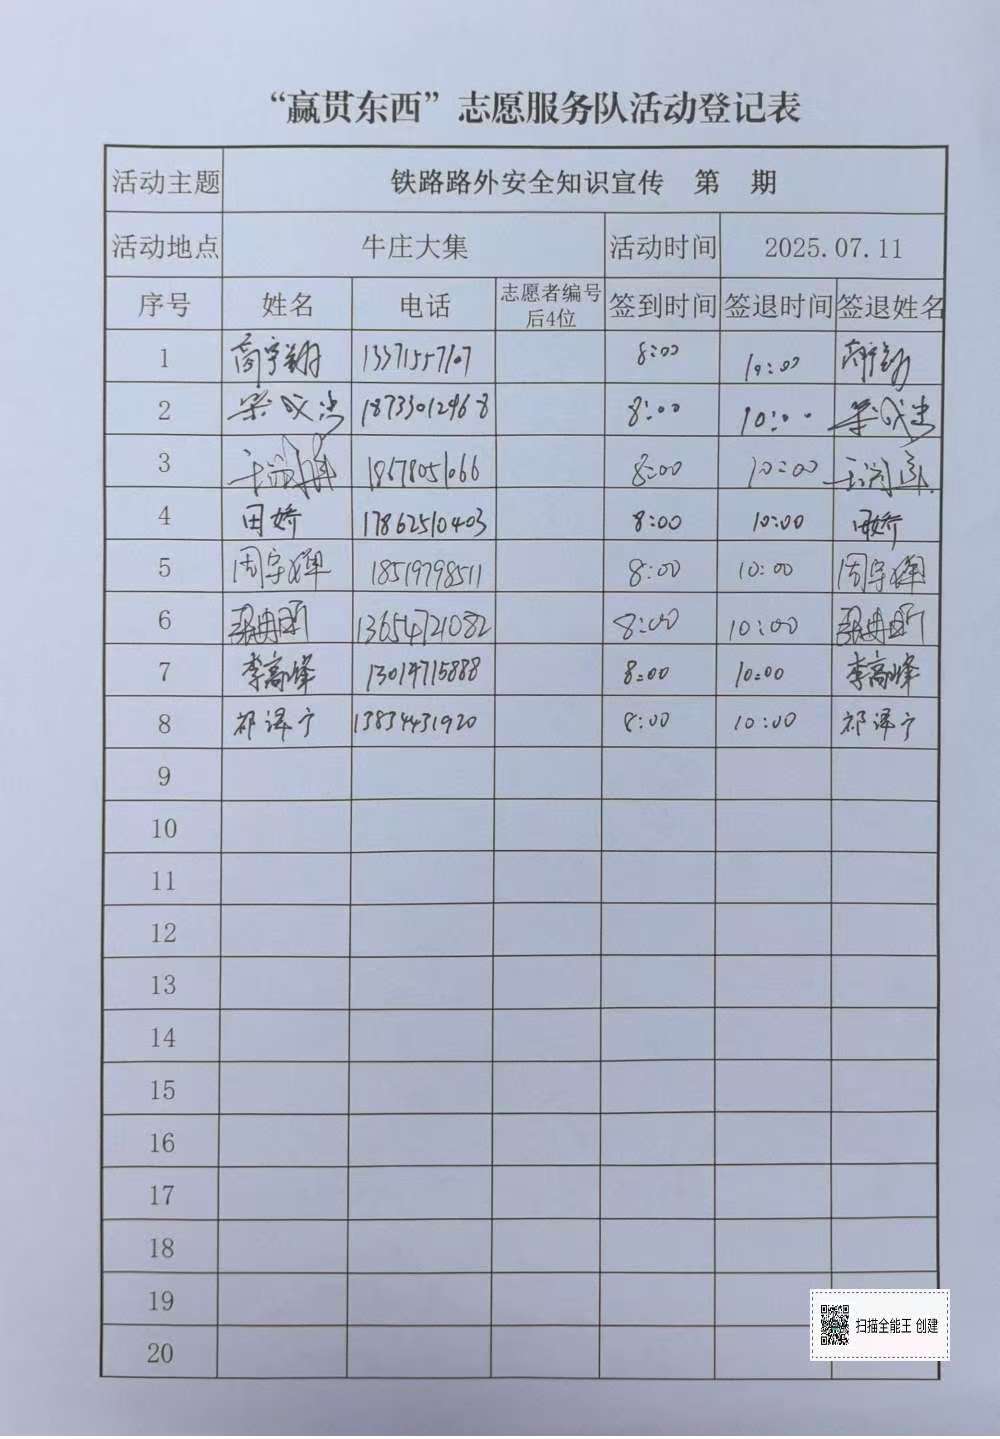 “赢贯东西”志愿服务队活动登记表
活动主题 铁路路外安全知识宣传 第 期
活动地点 牛庄大集 活动时间 2025.07.11
序号 姓名 电话 志愿者编号后4位 签到时间 签退时间 签退姓名
1 13371557107 8:00 10:00
2 18733012968 8:00 10:00
3 18678051066 8:00 10:00
4 田娇 17862510403 8:00 10:00 田娇
5 周宇辉 18519798511 8:00 10:00 周宇辉
6 13654721082 8:00 10:00
7 李高峰 13014715888 8:00 10:00 李高峰
8 祁泽宁 13834431920 8:00 10:00 祁泽宁
9
10
11
12
13
14
15
16
17
18
19
20
扫描全能王 创建